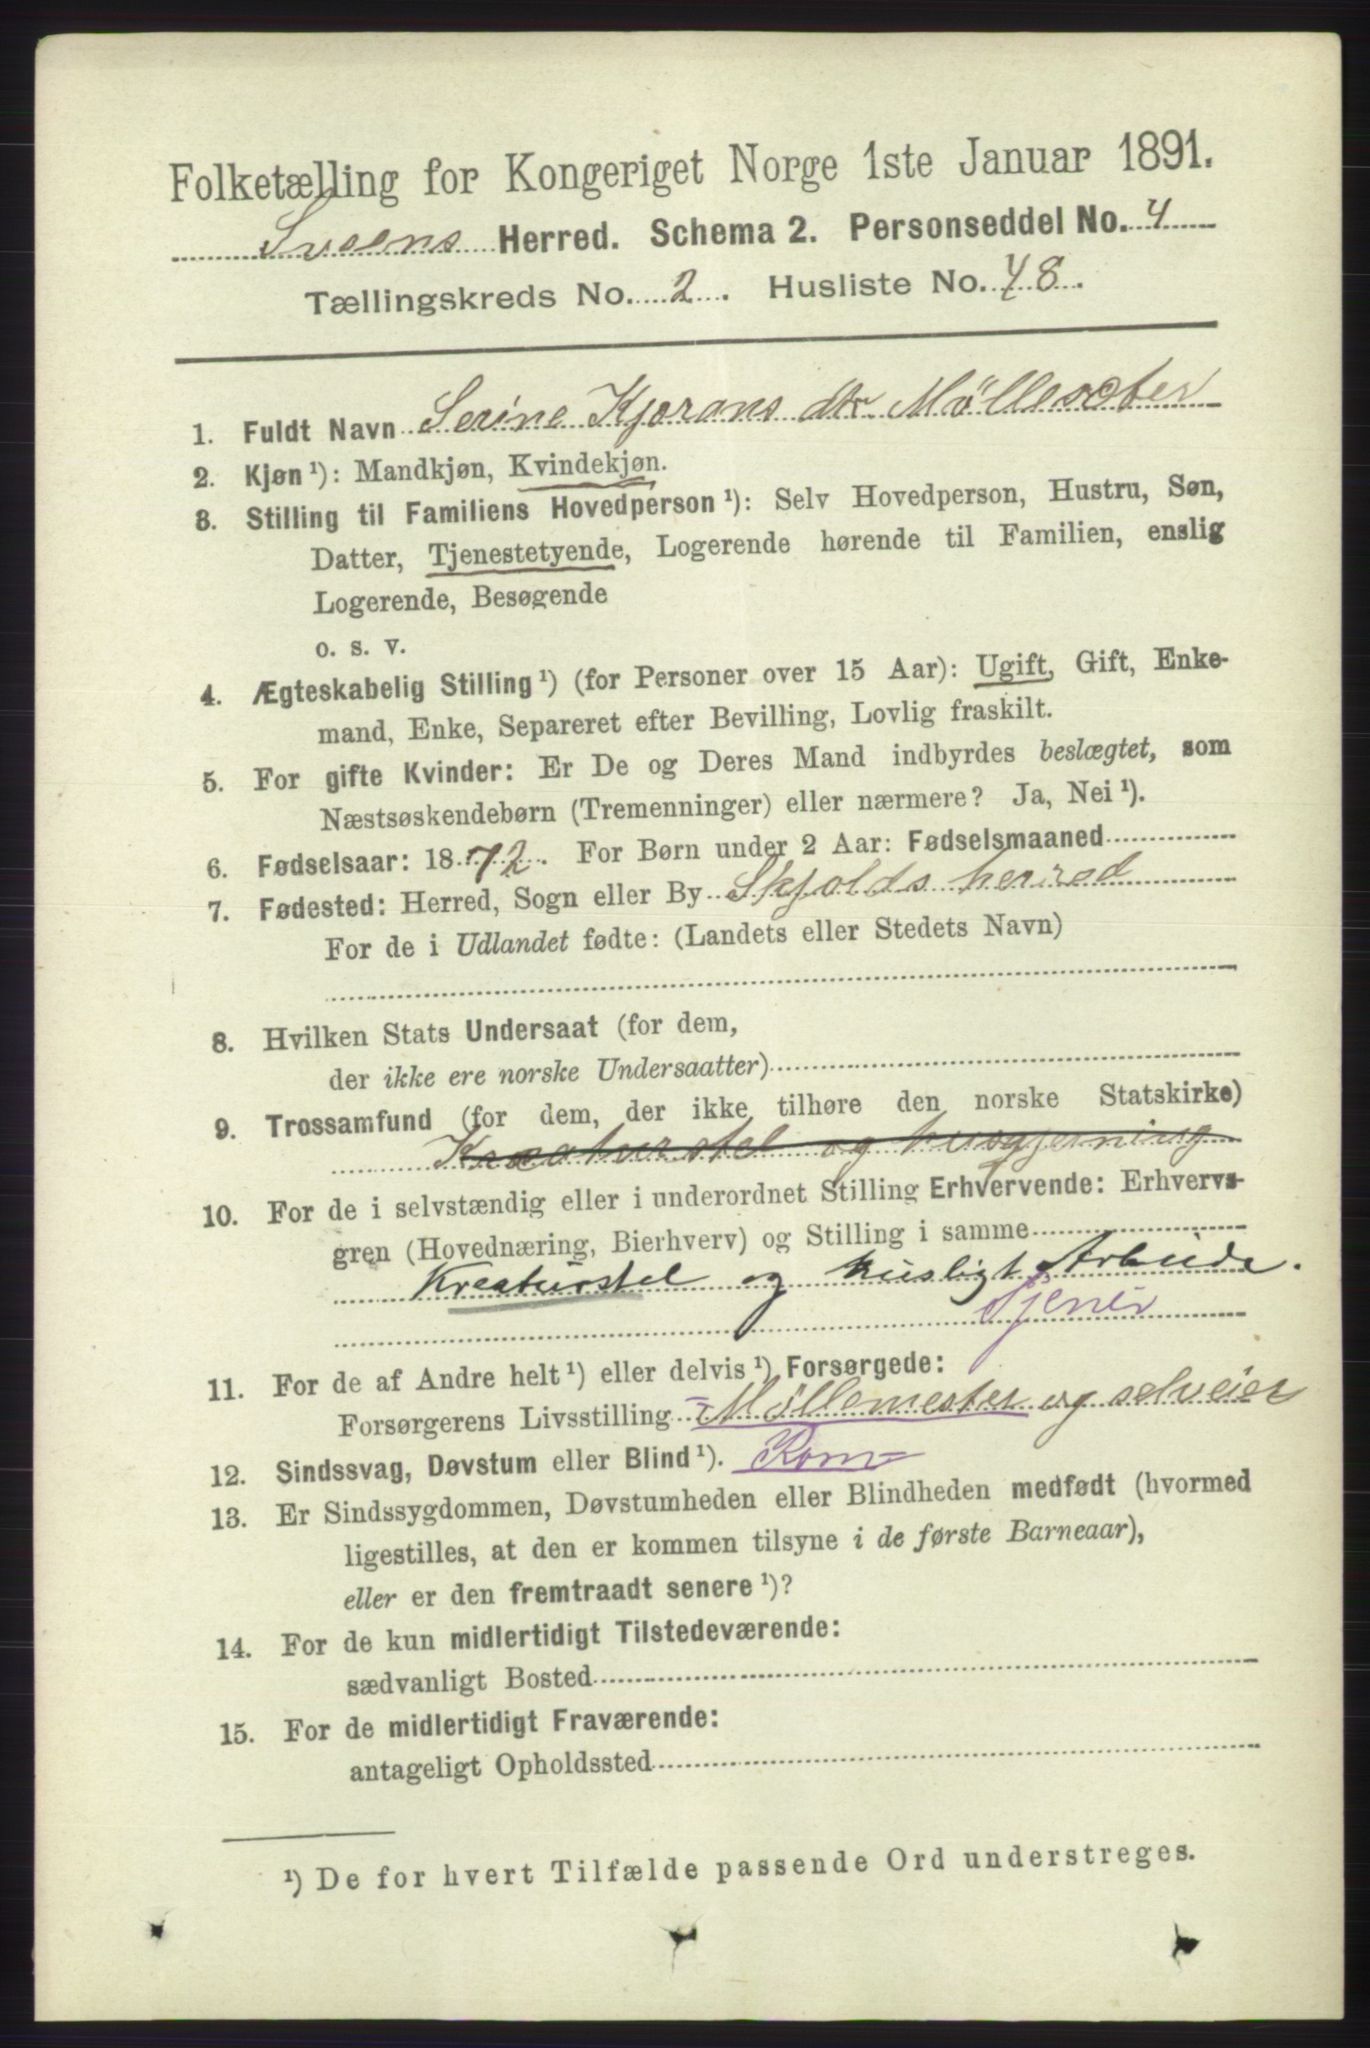 Folketælling for Kongeriget Norge 1ste Januar 1891.
Sveens Herred. Schema 2. Personseddel No. 4
Tællingskreds No. 2. Husliste No. 48.
1. Fuldt Navn Serine Kjorans dtr
2. Kjøn ¹): Mandkjøn, Kvindekjøn.
3. Stilling til Familiens Hovedperson ¹): Selv Hovedperson, Hustru, Søn,
Datter, Tjenestetyende, Logerende hørende til Familien, enslig
Logerende, Besøgende
o. s. v.
4. Ægteskabelig Stilling ¹) (for Personer over 15 Aar): Ugift, Gift, Enke-
mand, Enke, Separeret efter Bevilling, Lovlig fraskilt.
5. For gifte Kvinder: Er De og Deres Mand indbyrdes beslægtet, som
Næstsøskendebørn (Tremenninger) eller nærmere? Ja, Nei ¹).
6. Fødselsaar: 1872. For Børn under 2 Aar: Fødselsmaaned
7. Fødested: Herred, Sogn eller By Skjolds herred
For de i Udlandet fødte: (Landets eller Stedets Navn)
8. Hvilken Stats Undersaat (for dem,
der ikke ere norske Undersaatter)
9. Trossamfund (for dem, der ikke tilhøre den norske Statskirke)
Kreaturstel og husgjerning
10. For de i selvstændig eller i underordnet Stilling Erhvervende: Erhvervs-
gren (Hovednæring, Bierhverv) og Stilling i samme
Kreaturstel og husligt Arbeide.
Tjener
11. For de af Andre helt ¹) eller delvis ¹) Forsørgede:
Forsørgerens Livsstilling Møllemester og selveier
12. Sindssvag, Døvstum eller Blind ¹).
13. Er Sindssygdommen, Døvstumheden eller Blindheden medfødt (hvormed
ligestilles, at den er kommen tilsyne i de første Barneaar),
eller er den fremtraadt senere ¹)?
14. For de kun midlertidigt Tilstedeværende:
sædvanligt Bosted
15. For de midlertidigt Fraværende:
antageligt Opholdssted
¹) De for hvert Tilfælde passende Ord understreges.